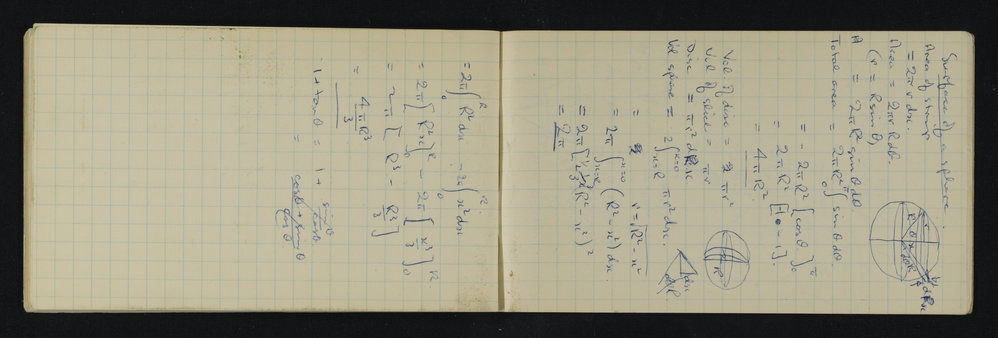 Surface of a sphere.
Area of strip
= 2πr dx.
Area = 2πr R dθ.
(r = R sin θ)
A = 2πR² sin θ dθ
Total area = 2πR² ∫₀^π sin θ dθ
= - 2πR² [cos θ]₀^π
= 2πR² [-1 - 1].
= 4πR²
Vol of disc = πr²
Vol of slice = πr
Disc = πr² dx
Vol sphere = 2∫_{x=R}^{x=0} πr² dx.
r = √R² - x²
= 2π ∫_{x=0}^{x=R} (R² - x²) dx
= 2π [⅓ (R² - x²)²
= 2π
= 2π ∫₀^R R² dx - 2π ∫ x² dx
= 2π [R² x]₀^R - 2π [x³/3]₀^R
= 2π [R³ - R³/3]
= 4πR³/3
1 + tan θ = 1 + sin θ/cos θ
= cos θ + sin θ/cos θ